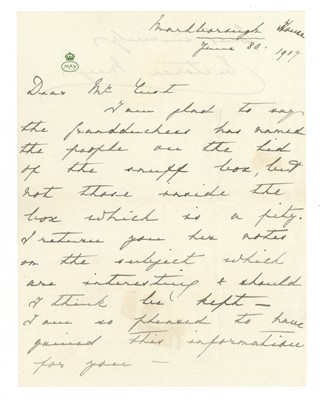 Marlborough House
June 30. 1907
MAY
Dear Mr Cust
I am glad to say
the Grandduchess has named
the people on the lid
of the snuff box, but
not those inside the
box which is a pity.
I return you her notes
on the subject which
are interesting & should
I think be kept –
I am so pleased to have
gained this information
for you –